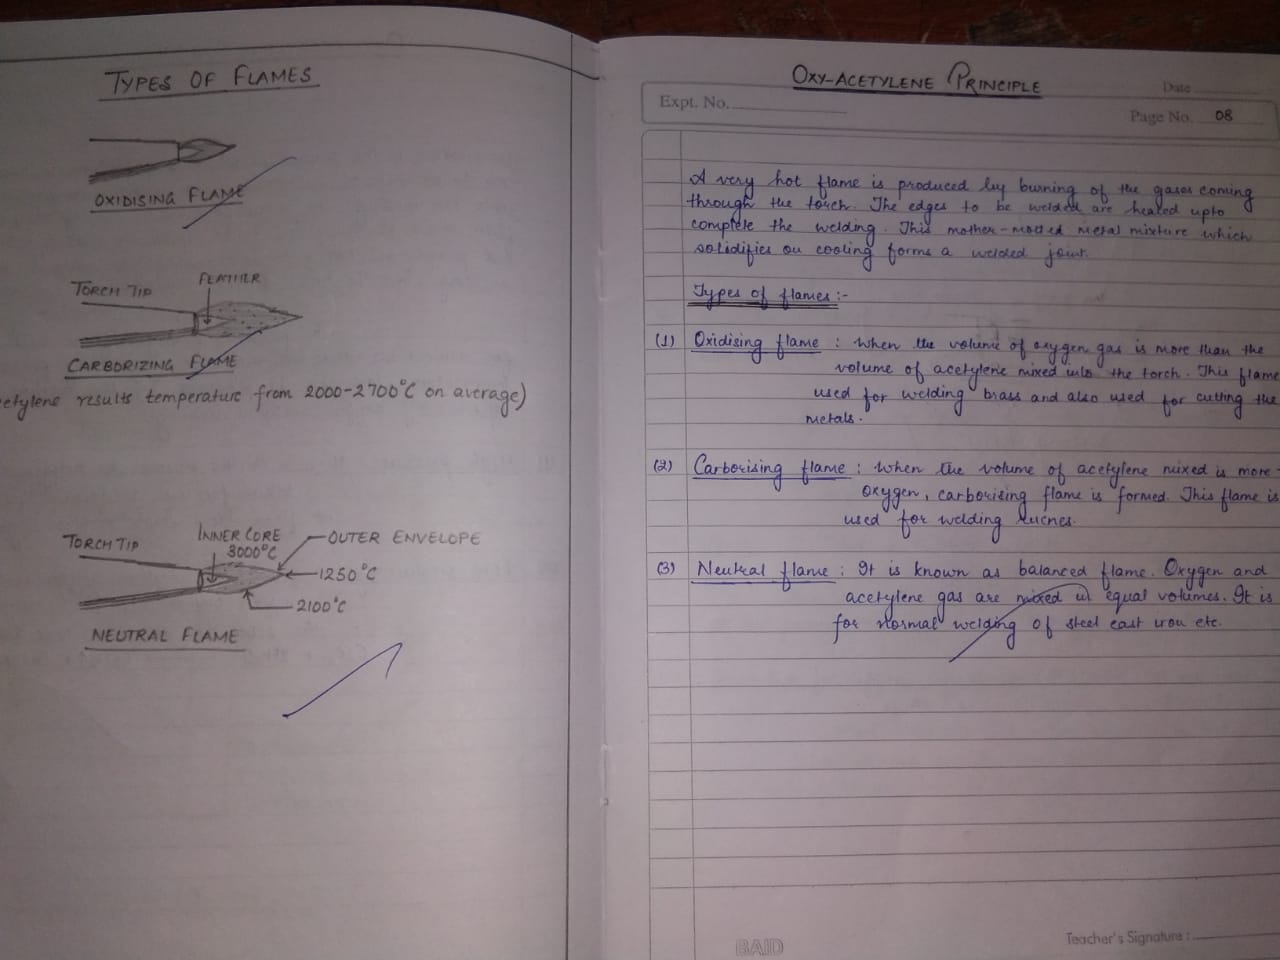 TYPES OF FLAMES
OXIDISING FLAME
TORCH TIP
FEATHER
CARBORIZING FLAME
etylene results temperature from 2000-2700°C on average)
TORCH TIP
INNER CORE
3000°C
OUTER ENVELOPE
1250°C
2100°C
NEUTRAL FLAME
OXY-ACETYLENE PRINCIPLE
Date
Expt. No.
Page No. 08
A very hot flame is produced by burning of the gases coming
through the torch. The edges to be welded are heated upto
complete the welding. This mother-motted metal mixture which
solidifies on cooling forms a welded joint.
Types of flames :-
(1) Oxidising flame : when the volume of oxygen gas is more than the
volume of acetylene mixed into the torch. This flame
used for welding brass and also used for cutting the
metals.
(2) Carborising flame : when the volume of acetylene mixed is more
oxygen, carborising flame is formed. This flame is
used for welding
(3) Neutral flame : It is known as balanced flame. Oxygen and
acetylene gas are mixed in equal volumes. It is
for normal welding of steel cast iron etc.
BAID
Teacher's Signature :